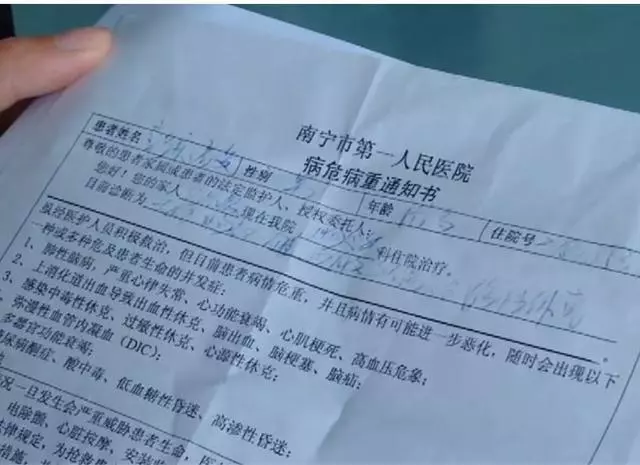 南宁市第一人民医院
病危病重通知书
患者姓名 性别 年龄 住院号
尊敬的患者家属或患者的法定监护人、授权委托人:
您好!您的家人 现在我院 科住院治疗。
目前诊断为 休克
虽经医护人员积极救治,但目前患者病情危重,并且病情有可能进一步恶化,随时会出现以下
一种或多种危及患者生命的并发症:
1、肺性脑病,严重心律失常、心功能衰竭、心肌梗死、高血压危象;
2、上消化道出血导致出血性休克、脑出血、脑梗塞、脑疝;
3、感染中毒性休克、过敏性休克、心源性休克;
弥漫性血管内凝血(DIC);
多器官功能衰竭;
糖尿病酮症、酸中毒、低血糖性昏迷、高渗性昏迷;
情况一旦发生会严重威胁患者生命,医
电除颤、心脏按摩、安装
法律规定,为抢救患
措施,